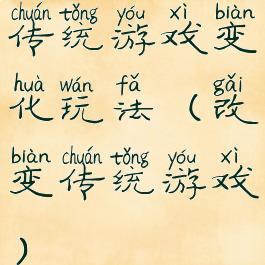 chuán tǒng yóu xì biàn
传统游戏变
huà wán fǎ gǎi
化玩法（改
biàn chuán tǒng yóu xì
变传统游戏
）